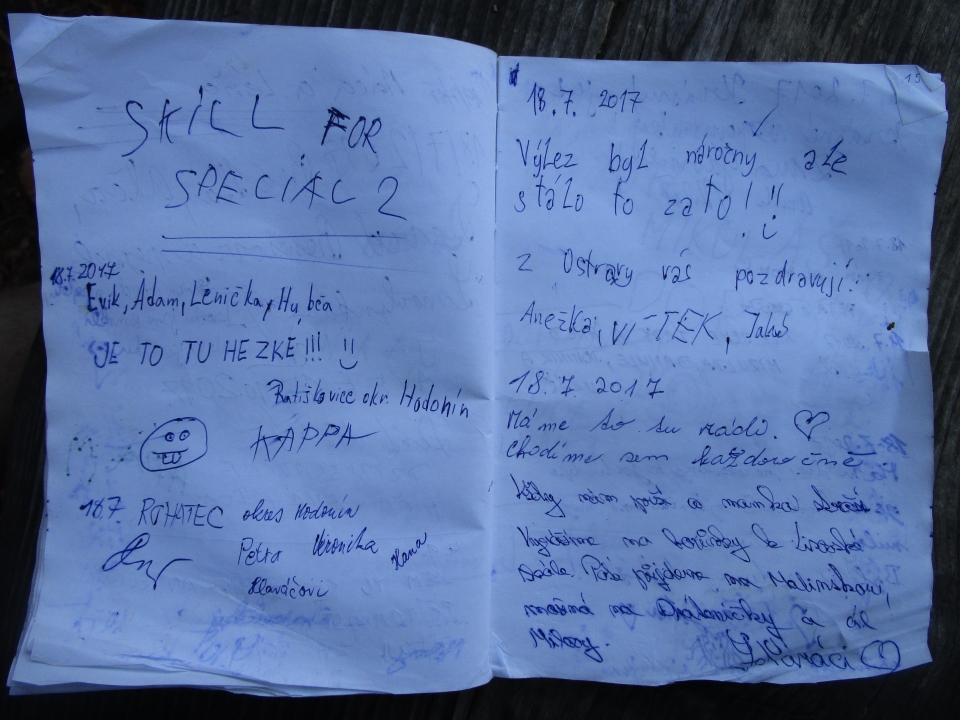 SKILL FOR
SPECIÁL 2
18.7.2017
Evik, Adam, Lenička, Hubča
JE TO TU HEZKÉ!!!
Ratiškovice okr. Hodonín
KAPPA
18.7 ROHATEC okres Hodonín
Petra Veronika Hana
Hlaváčovi
15
18.7. 2017
Výlez byl náročný ale
stálo to zato!!!
z Ostravy vás pozdravují:
Anežka, VÍTEK, Jakub
18.7. 2017
Máme to tu rádi.
Chodíme sem každoročně
Kéž nám a mamka
na borůvky k Lisovské
skále. Pak půjdeme na Malinskou,
možná na Drátoničky a dál